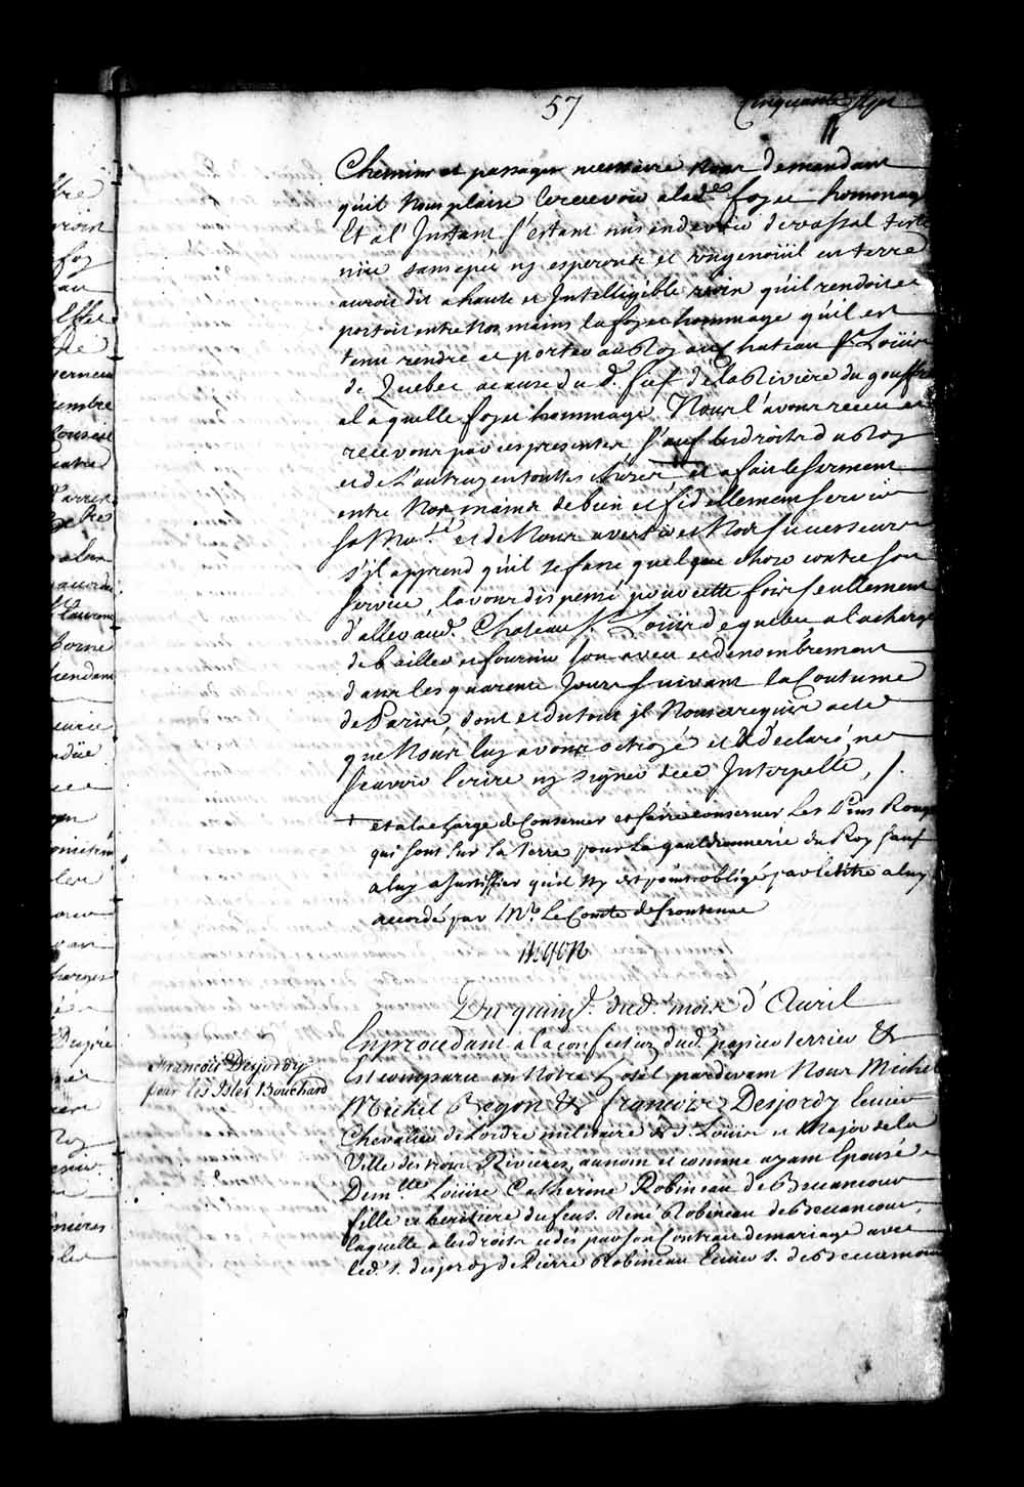 57
Cinquante Sept
Chemins et passages necessaire Nous demandant
qu'il Nous plaise le recevoir alad.e foy et hommage
Et a l'Instant s'estant mis en devoir de vassal teste
nüe sans epée ny esperons et un genoüil en terre
auroit dit a haute et Intelligible voix qu'il rendoit et
portoit entre Nos mains la foy et hommage qu'il est
tenu rendre et porter au Roy au Chateau St Loüis
de Quebec a cause du d. fief de la Riviere du gouffre
a laquelle foy et hommage Nous l'avons receu et
recevons par ces presentes sauf les droits du Roy
et de L'autruy en touttes choses + et a fait le serment
entre Nos mains de bien et fidellement servir
sa Ma.té et de Nous avertir et Nos successeurs
s'jl apprend qu'il se fasse quelque chose contre son
service, l'avons dispensé pour cette fois seullement
d'aller aud. Chateau St Loüis de quebec, a la charge
de bailler et fournir son aveu et denombrement
dans les quarente Jours suivant la Coutume
de Paris, dont et du tout jl Nous a requis acte
que Nous luy avons octroyé et a declaré ne
sçavoir Ecrire ny signer de ce Interpellé, /.
+ et a la charge de Conserver et faire conserver Les Pins Rouges
qui sont sur la Terre pour La gauldronnerie du Roy sauf
a luy a Justiffier qu'il Ny est point obligé par le titre a luy
accordé par Mr. Le Comte de frontenac
Begon
Du quinz.e dud. mois d'Avril
François Desjordy
pour les Isles Bouchard
En procedant a la confection dud. papier terrier &
Est comparu en Notre hotel pardevant Nous Michel
Michel Begon & françois Desjordy Ecuier
Chevalier de L'ordre militaire de St Loüis et Major de la
Ville des trois Rivieres, au nom et comme ayant Epousé
Dem.lle Loüise Catherine Robineau de Becancour
fille et heritiere du feu s. René Robineau de Becancour,
laquelle a les droits cedés par son Contract de mariage avec
led. s. desjordy de Pierre Robineau Ecuier s. de Becancour